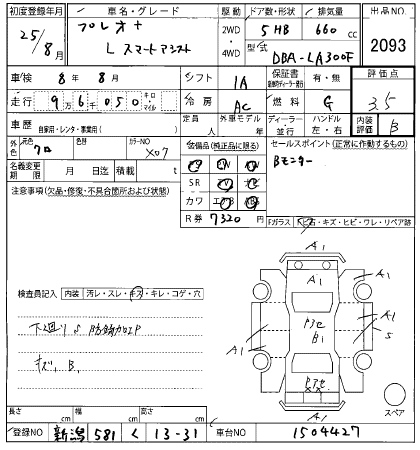 初度登録年月 車名・グレード 駆動 ドア数・形状 排気量 出品NO.
25/8月 プレオ+ 2WD 5HB 660cc 2093
L スマートアシスト 4WD 型式 DBA-LA300F
車検 8年 8月 シフト IA 保証書 有・無 評価点
走行 9万6千050 キロ・マイル 冷房 AC 燃料 G 3.5
車歴 自家用・レンタ・事業用( ) 定員 人 外車モデル ディーラー・並行 ハンドル 左・右 内装評価 B
外色 元色 クロ 色替 カラーNO X07 装備品(純正品に限る) セールスポイント(正常に作動するもの)
名義変更期限 月 日迄 積載 t SR Bモニター
注意事項(欠品・修復・不具合箇所および状態) カワ エアB
R券 7320円 Fガラス 石・キズ・ヒビ・ワレ・リペア跡
A1
A1 A1
検査員記入 内装 汚レ・スレ・キズ・キレ・コゲ・穴
下廻りS 防錆加工P
ドアセ
B1
A1 A1 S
キズ、B、
A1
スペア
長さ cm 幅 cm 高さ cm
登録NO 新潟 581 く 13-31 車台NO 1504427